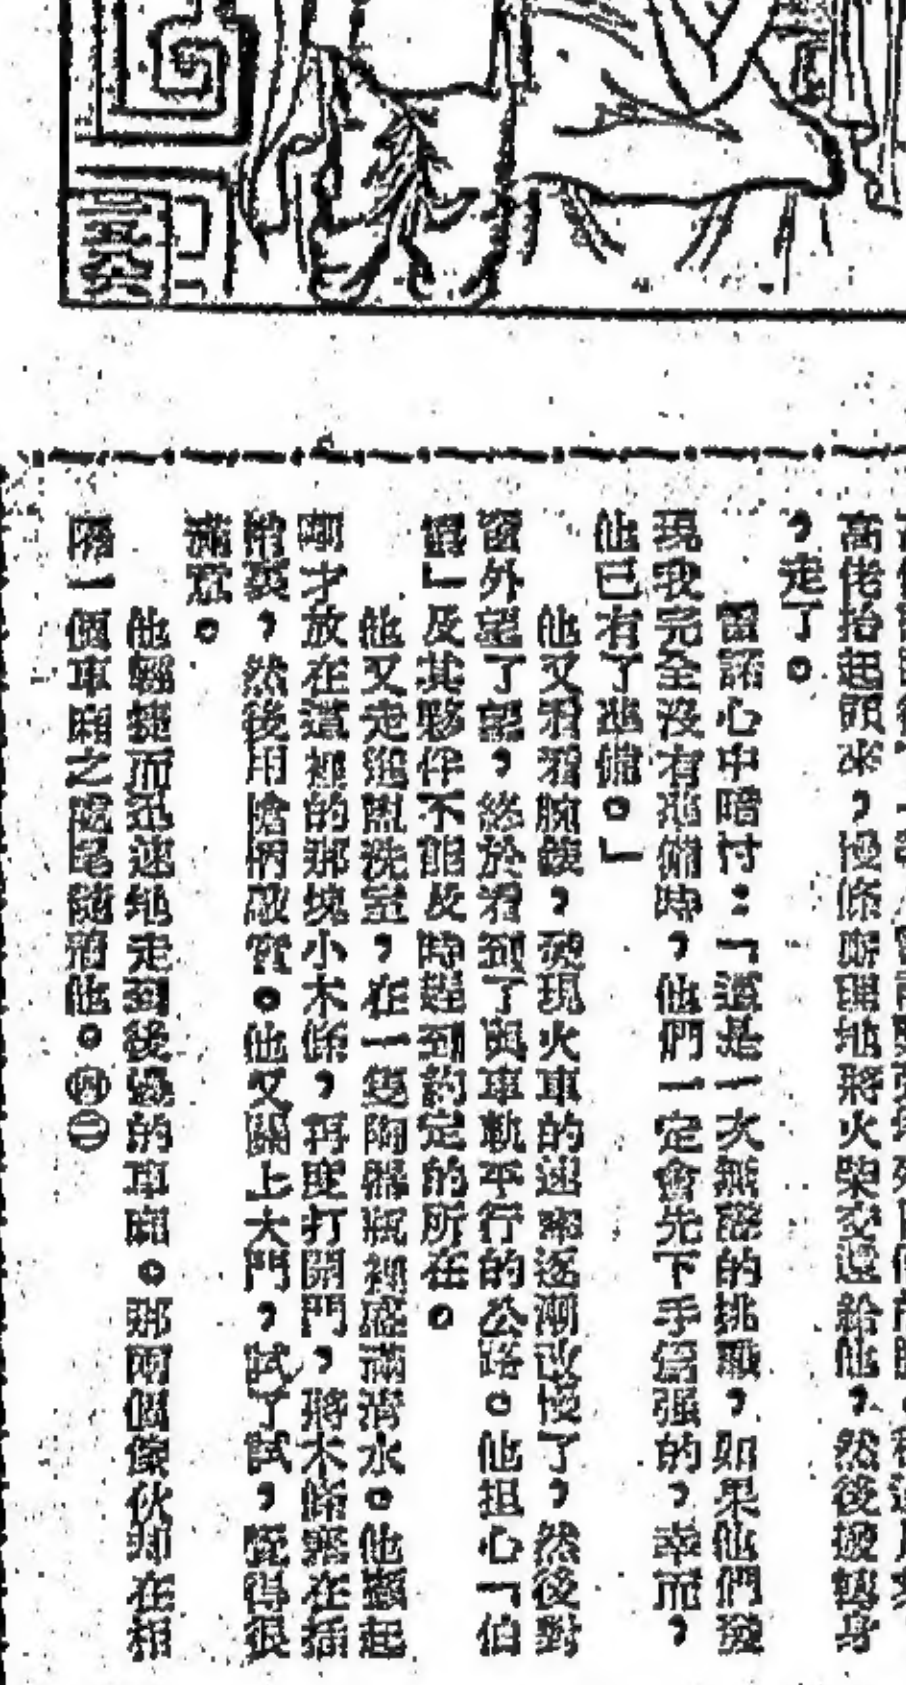 二五六
高佬抬起頭來，慢條斯理地將火柴交還給他，然後擰轉身
，走了。
雷諾心中暗忖：「這是一次無聲的挑戰，如果他們發
現我完全沒有準備時，他們一定會先下手爲强的，幸而，
他已有了準備。」
他又看看腕錶，發現火車的速率逐漸改慢了，然後對
窗外望了望，終於看到了與車軌平行的公路。他担心「伯
爵」及其夥伴不能及時趕到約定的所在。
他又走進盥洗室，在一隻陶器瓶裡盛滿清水。他拿起
剛才放在這裡的那塊小木條，再度打開門，將木條塞在插
裏，然後用槍柄敲實。他又關上大門，試了試，覺得很
滿意。
他輕捷而迅速地走到後邊的車廂。那兩個傢伙却在相
隔一個車廂之處尾隨着他。二